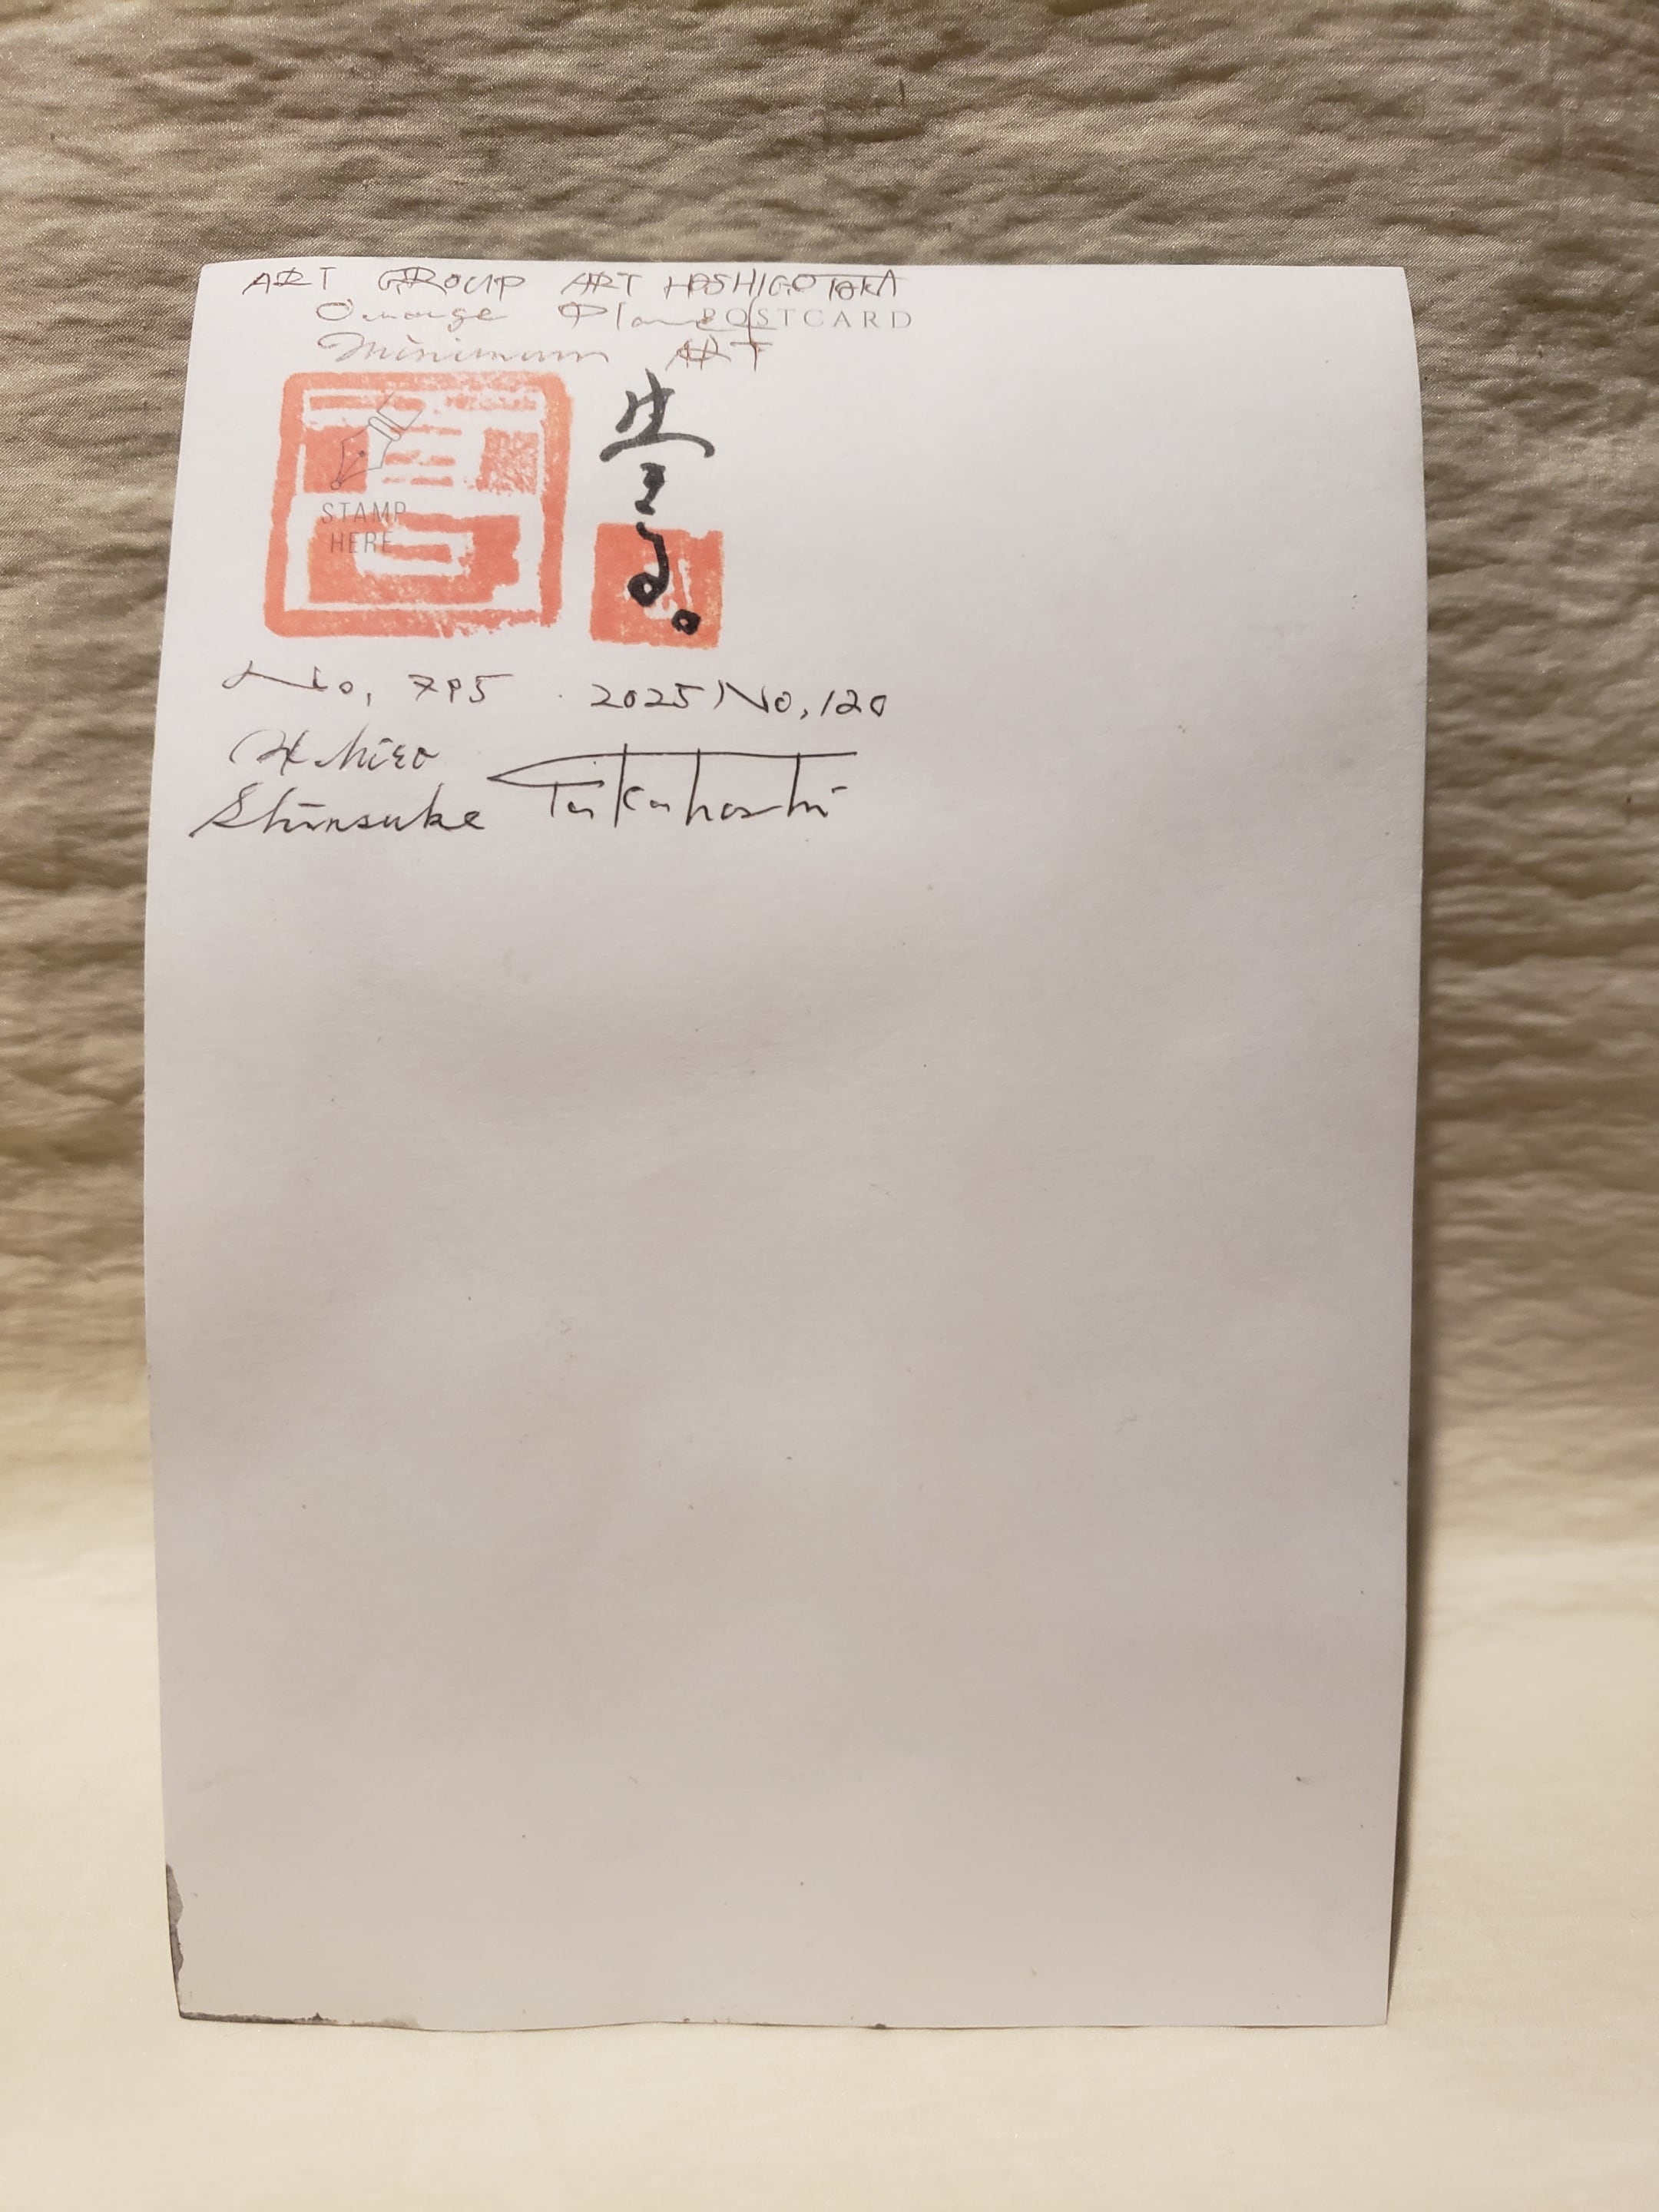 ART GROUP ART HASHIGOTAKA
Orange Planet
POSTCARD
Minimum ART
STAMP
HERE
生きる。
No, 795 2025 No, 120
Shinsuke Takahashi